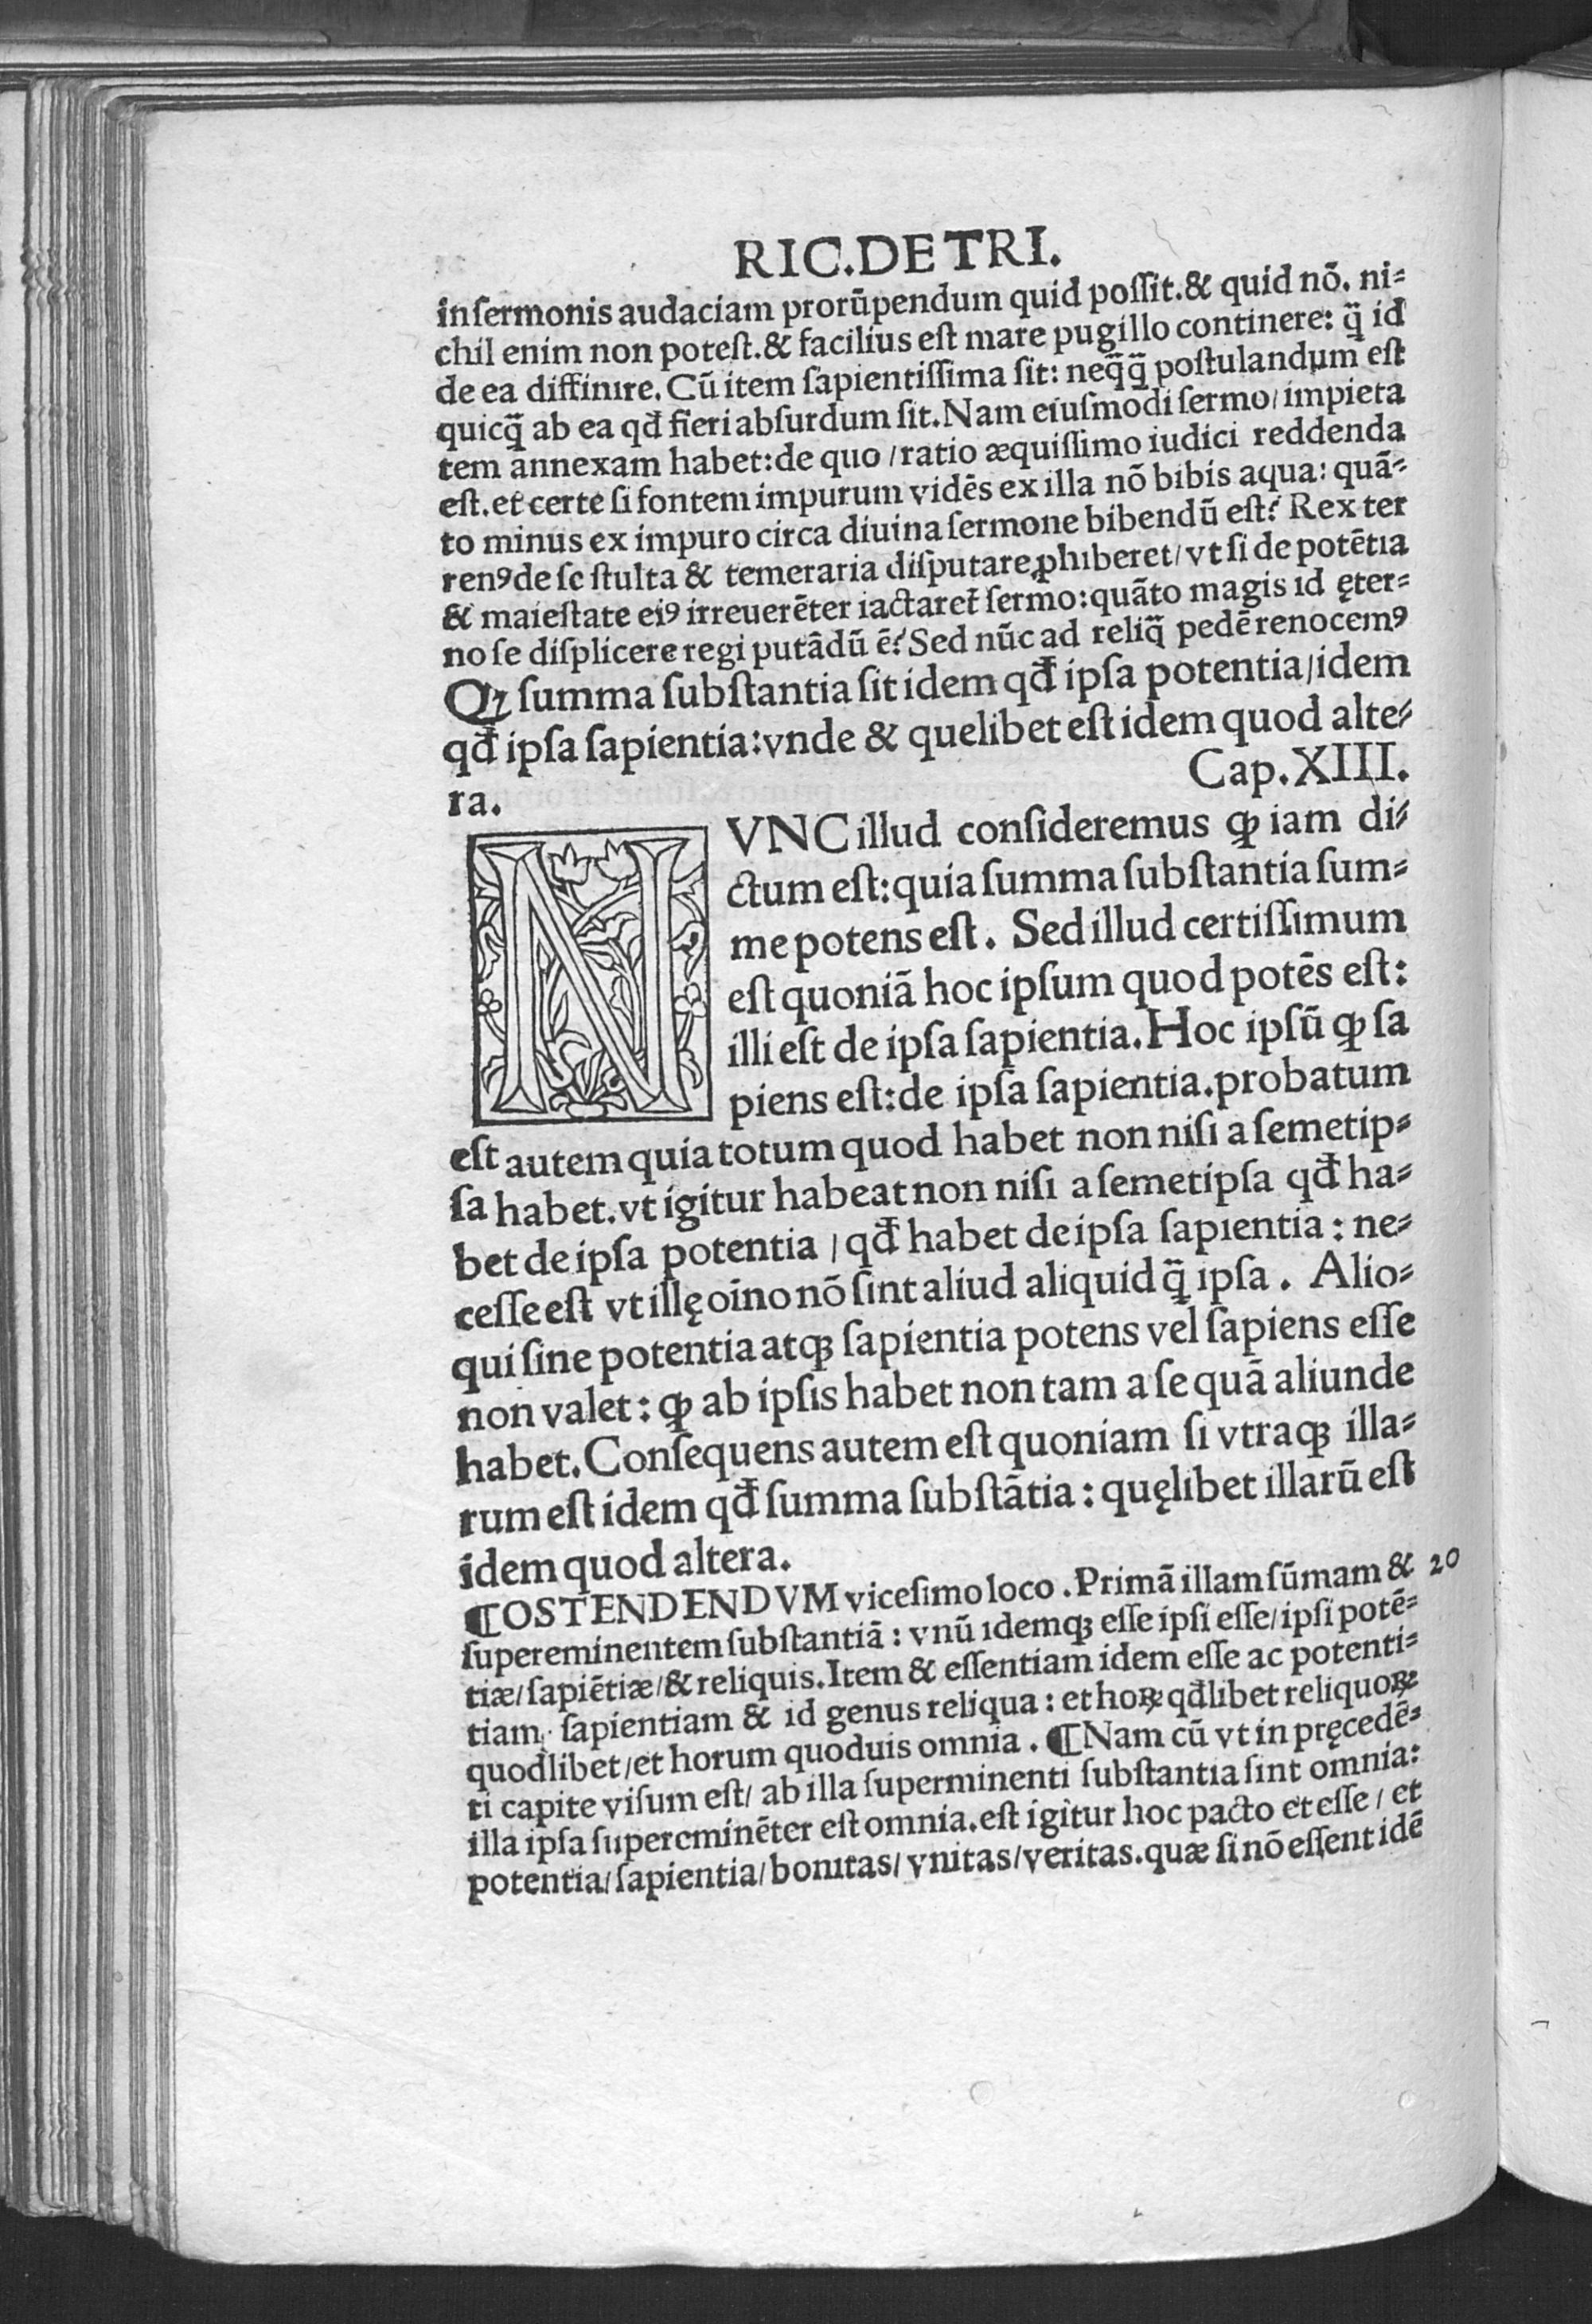 RIC.DE TRI.
in ſermonis audaciam prorūpendum quid poſſit.& quid nō. ni⸗
chil enim non poteſt.& facilius eſt mare pugillo continere: q̄ id
de ea diffinire. Cū item ſapientiſſima ſit: neq̄q̄ poſtulandum eſt
quicq̄ ab ea qđ fieri abſurdum ſit. Nam eiuſmodi ſermo/ impieta
tem annexam habet: de quo / ratio æquiſſimo iudici reddenda
eſt. et certe ſi fontem impurum vidēs ex illa nō bibis aqua: quā⸗
to minus ex impuro circa diuina ſermone bibendū eſt? Rex ter
renꝰ de ſe ſtulta & temeraria diſputare ꝓhiberet/ vt ſi de potētia
& maieſtate eiꝰ irreuerēter iactaret̄ ſermo: quāto magis id ęter⸗
no ſe diſplicere regi putādū ē? Sed nūc ad reliq̄ pedē renocemꝰ
Qꝫ ſumma ſubſtantia ſit idem qđ ipſa potentia/ idem
qđ ipſa ſapientia: vnde & quelibet eſt idem quod alte⸗
ra. Cap. XIII.
NVNC illud conſideremus ꝙ iam di⸗
ctum eſt: quia ſumma ſubſtantia ſum⸗
me potens eſt. Sed illud certiſſimum
eſt quoniā hoc ipſum quod potēs eſt:
illi eſt de ipſa ſapientia. Hoc ipſū ꝙ ſa
piens eſt: de ipſa ſapientia. probatum
eſt autem quia totum quod habet non niſi a ſemetip⸗
ſa habet. vt igitur habeat non niſi a ſemetipſa qđ ha⸗
bet de ipſa potentia / qđ habet de ipſa ſapientia: ne⸗
ceſſe eſt vt illę oīno nō ſint aliud aliquid q̄ ipſa. Alio⸗
qui ſine potentia atqꝫ ſapientia potens vel ſapiens eſſe
non valet: ꝙ ab ipſis habet non tam a ſe quā aliunde
habet. Conſequens autem eſt quoniam ſi vtraqꝫ illa⸗
rum eſt idem qđ ſumma ſubſtātia: quęlibet illarū eſt
idem quod altera.
¶OSTENDENDVM viceſimo loco. Primā illam ſūmam & 20
ſupereminentem ſubſtantiā: vnū idemqꝫ eſſe ipſi eſſe/ ipſi potē⸗
tiæ/ ſapiētiæ/ & reliquis. Item & eſſentiam idem eſſe ac potenti⸗
tiam, ſapientiam & id genus reliqua: et hoꝝ qđlibet reliquoꝝ
quodlibet/ et horum quoduis omnia. ¶Nam cū vt in pręcedē⸗
ti capite viſum eſt/ ab illa ſuperminenti ſubſtantia ſint omnia:
illa ipſa ſupereminēter eſt omnia. eſt igitur hoc pacto et eſſe/ et
potentia/ ſapientia/ bonitas/ vnitas/ veritas. quæ ſi nō eſſent idē